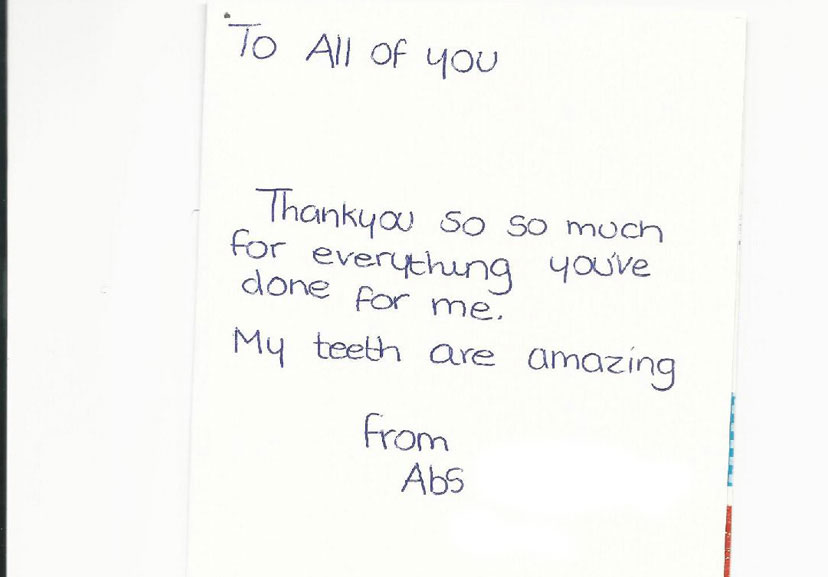 To All of you
Thankyou so so much
for everything you've
done for me.
My teeth are amazing
from
Abs